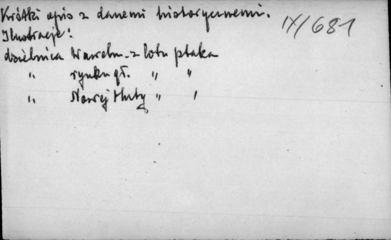 Krótki opis z danemi historycznemi.
IX/681
Ilustracje:
dzielnica Wawelu z lotu ptaka
„ rynku gł. „ „
„ Nowej Huty „ „